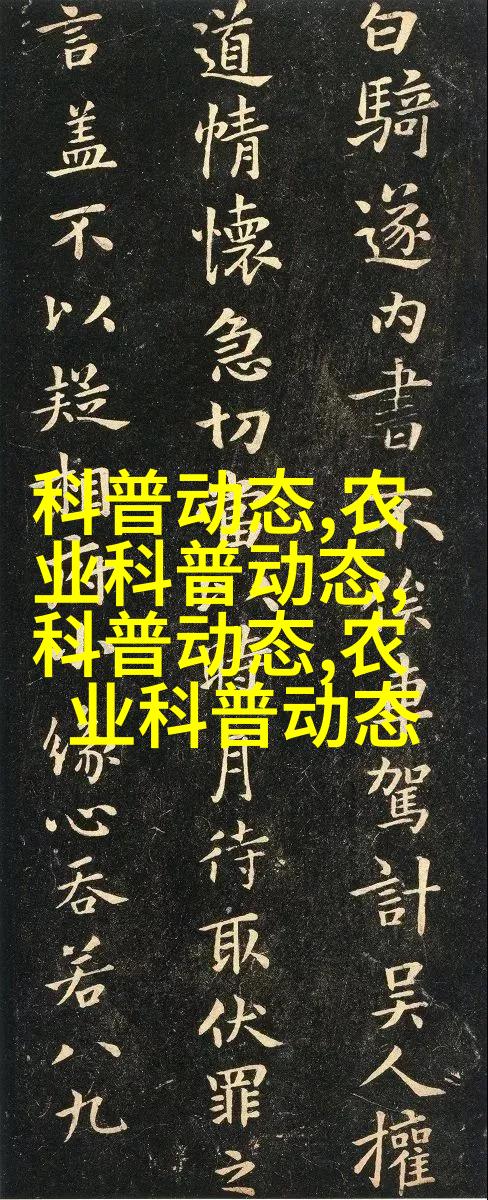 白騎遂内書不俟車駕計吴人
道情懷急切當時月待取伏罪之
言盖不以疑相緣心吞若八九
科普动态,农
业科普动态,
科普动态,农
业科普动态